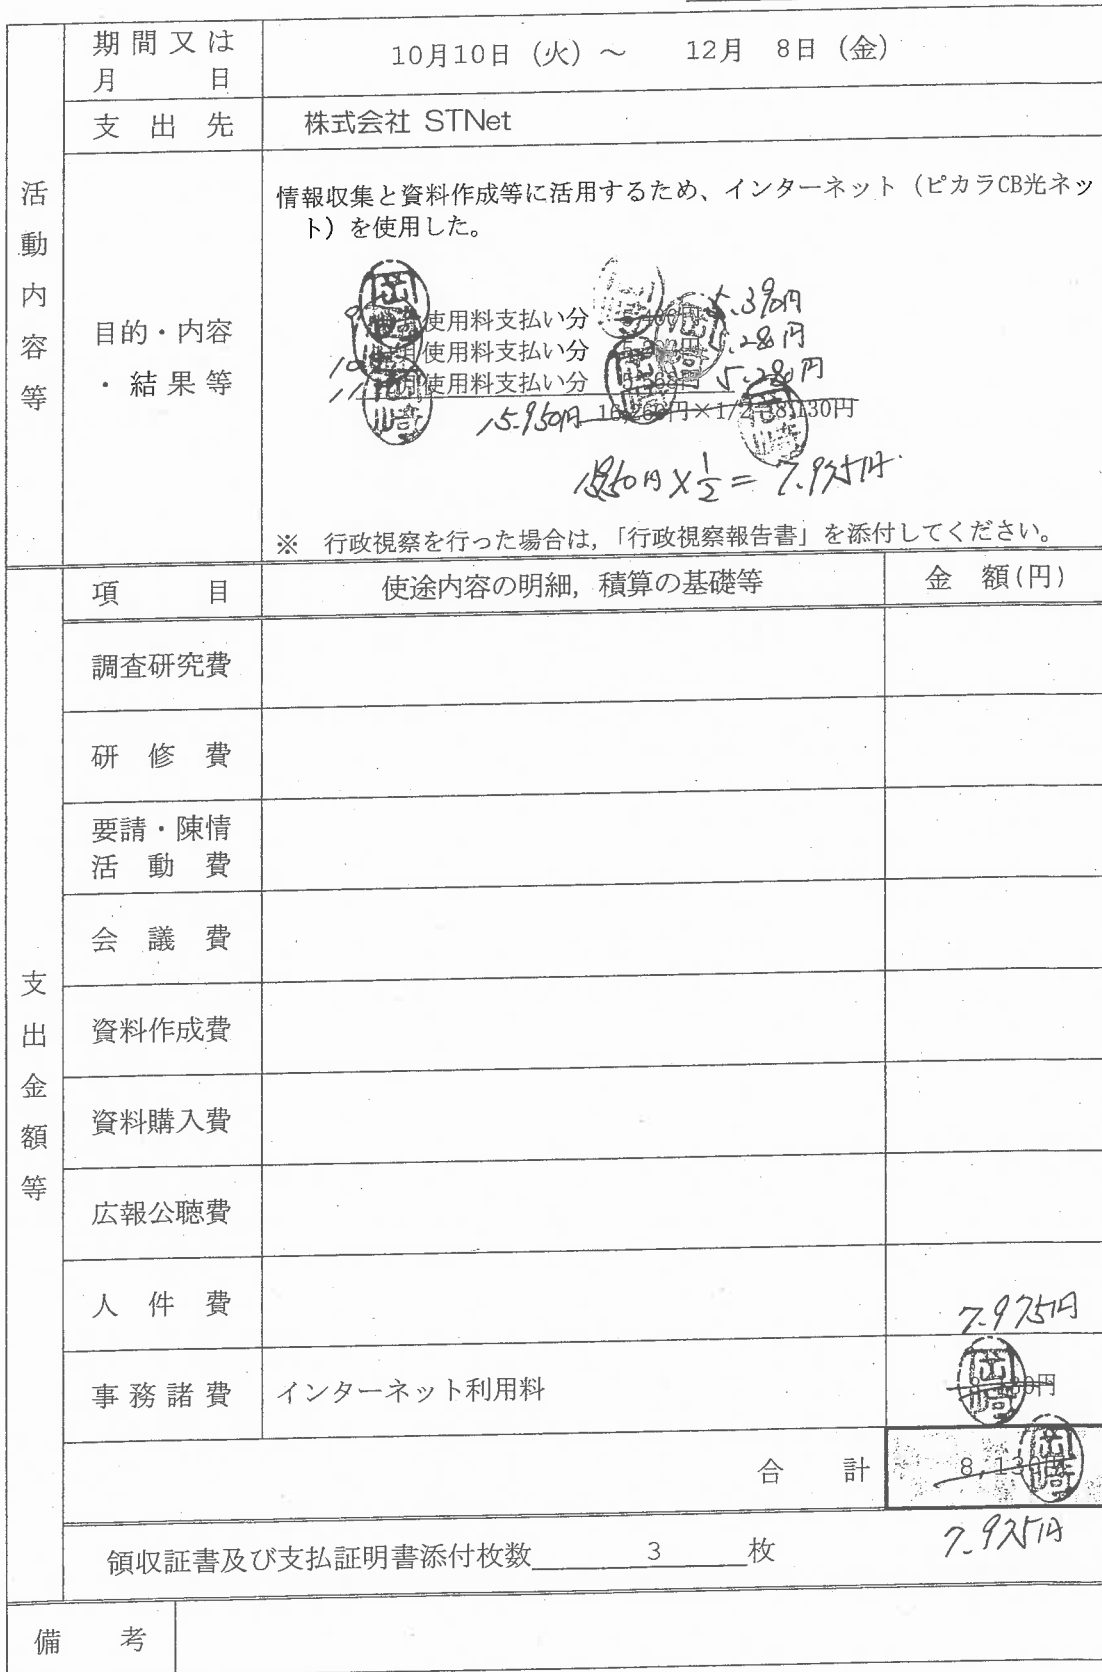 期間又は
月　　日
10月10日（火）～　12月　8日（金）
支　出　先
株式会社 STNet
活動内容等
目的・内容
・結果等
情報収集と資料作成等に活用するため、インターネット（ピカラCB光ネッ
ト）を使用した。
使用料支払い分　5.390円
使用料支払い分　5.280円
使用料支払い分　5.280円
15.950円　16,260円×1/2=8,130円
×1/2＝7.975円
※　行政視察を行った場合は,「行政視察報告書」を添付してください。
支出金額等
項　　目
使途内容の明細,積算の基礎等
金　額(円)
調査研究費
研　修　費
要請・陳情
活　動　費
会　議　費
資料作成費
資料購入費
広報公聴費
人　件　費
7.975円
事務諸費
インターネット利用料
8,130円
岡崎
合　　計
8,130円
岡崎
7.975円
領収証書及び支払証明書添付枚数　3　枚
備　　考